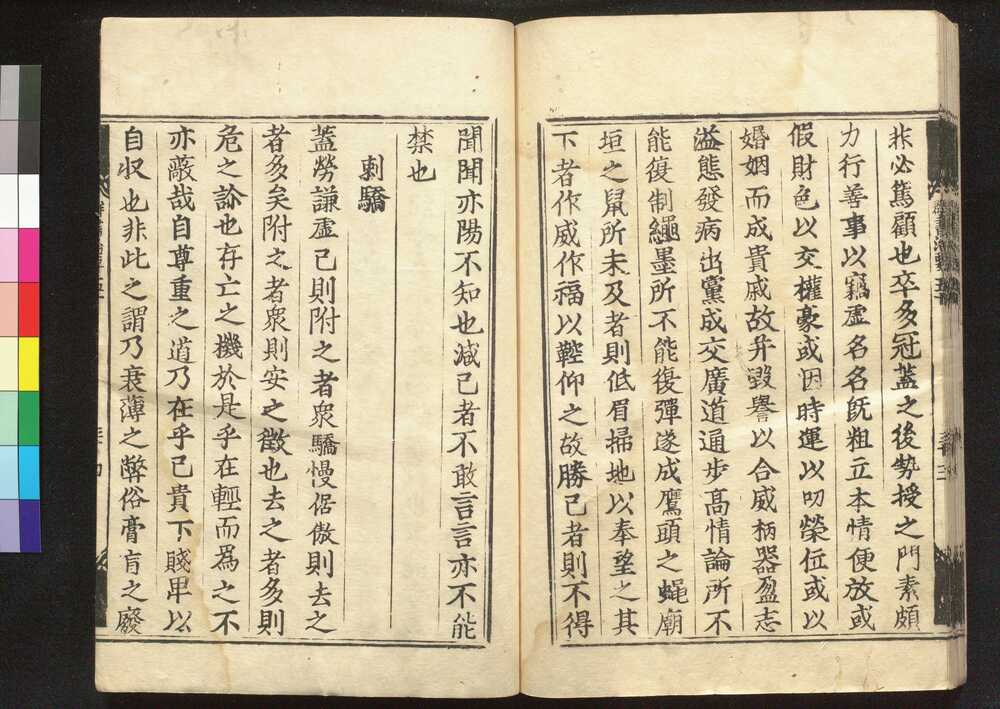 非必篤顧也卒多冠蓋之後勢授之門素頗
力行善事以竊虛名名既粗立本情便放或
假財色以交權豪或因時運以叨榮位或以
婚姻而成貴戚故弄毀譽以合威柄器盈志
溢態發病出黨成交廣道通步高情論所不
能復制繩墨所不能復彈遂成鷹頭之蠅廟
垣之鼠所未及者則低眉掃地以奉望之其
下者作威作福以鞚仰之故勝己者則不得
聞聞亦陽不知也減己者不敢言言亦不能
禁也
刺驕
蓋勞謙虛己則附之者眾驕慢倨傲則去之
者多矣附之者衆則安之徵也去之者多則
危之診也存亡之機於是乎在輕而為之不
亦蔽哉自尊重之道乃在乎以貴下賤卑以
自収也非此之謂乃衰薄之弊俗膏肓之廢